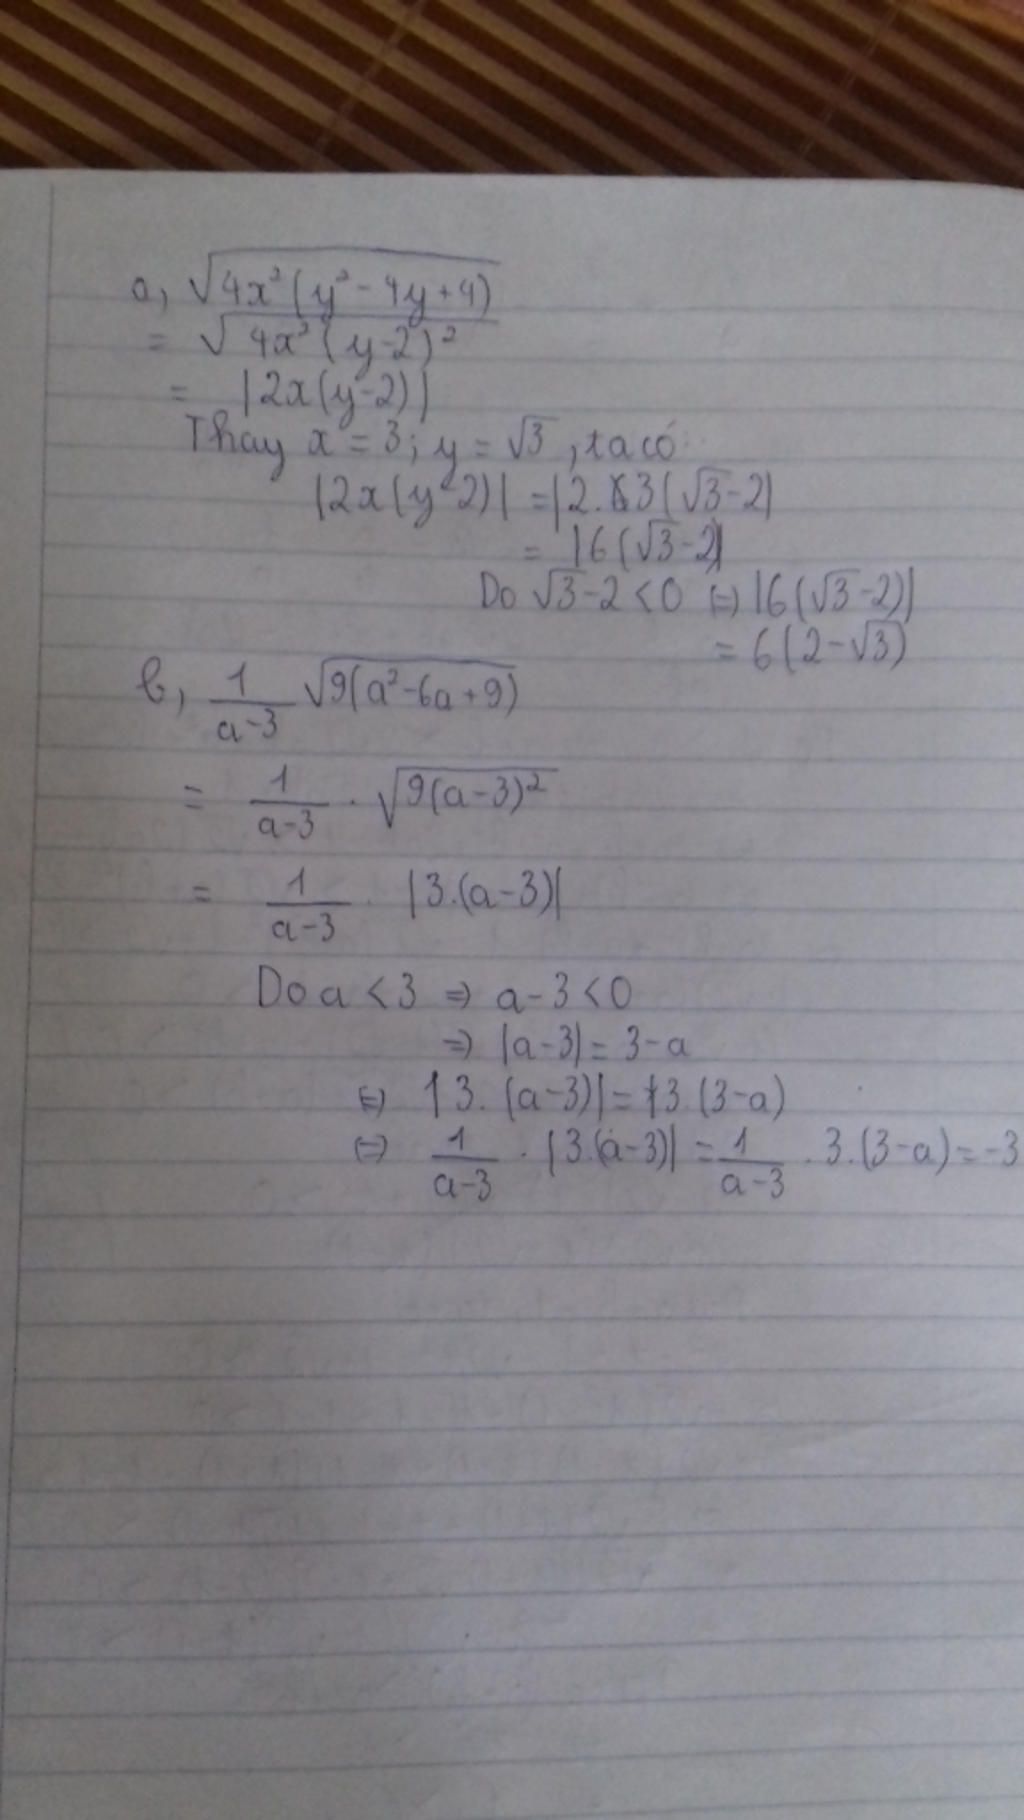 a, √4x²(y²-4y+4)
= √4x²(y-2)²
= |2x(y-2)|
Thay x = 3; y = √3, ta có:
|2x(y-2)| = |2.3(√3-2)|
= |6(√3-2)|
Do √3-2<0 ⇔ |6(√3-2)|
= 6(2-√3)
b, 1/(a-3) √9(a²-6a+9)
= 1/(a-3) . √9(a-3)²
= 1/(a-3) . |3.(a-3)|
Do a<3 ⇒ a-3<0
⇒ |a-3| = 3-a
⇔ |3.(a-3)| = 3.(3-a)
⇔ 1/(a-3) . |3.(a-3)| = 1/(a-3) . 3.(3-a) = -3